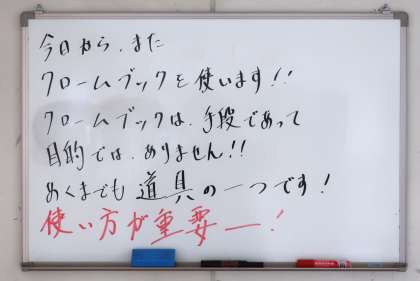 今日から、また
クロームブックを使います!!
クロームブックは、手段であって
目的ではありません!!
あくまでも道具の一つです!
使い方が重要ー!